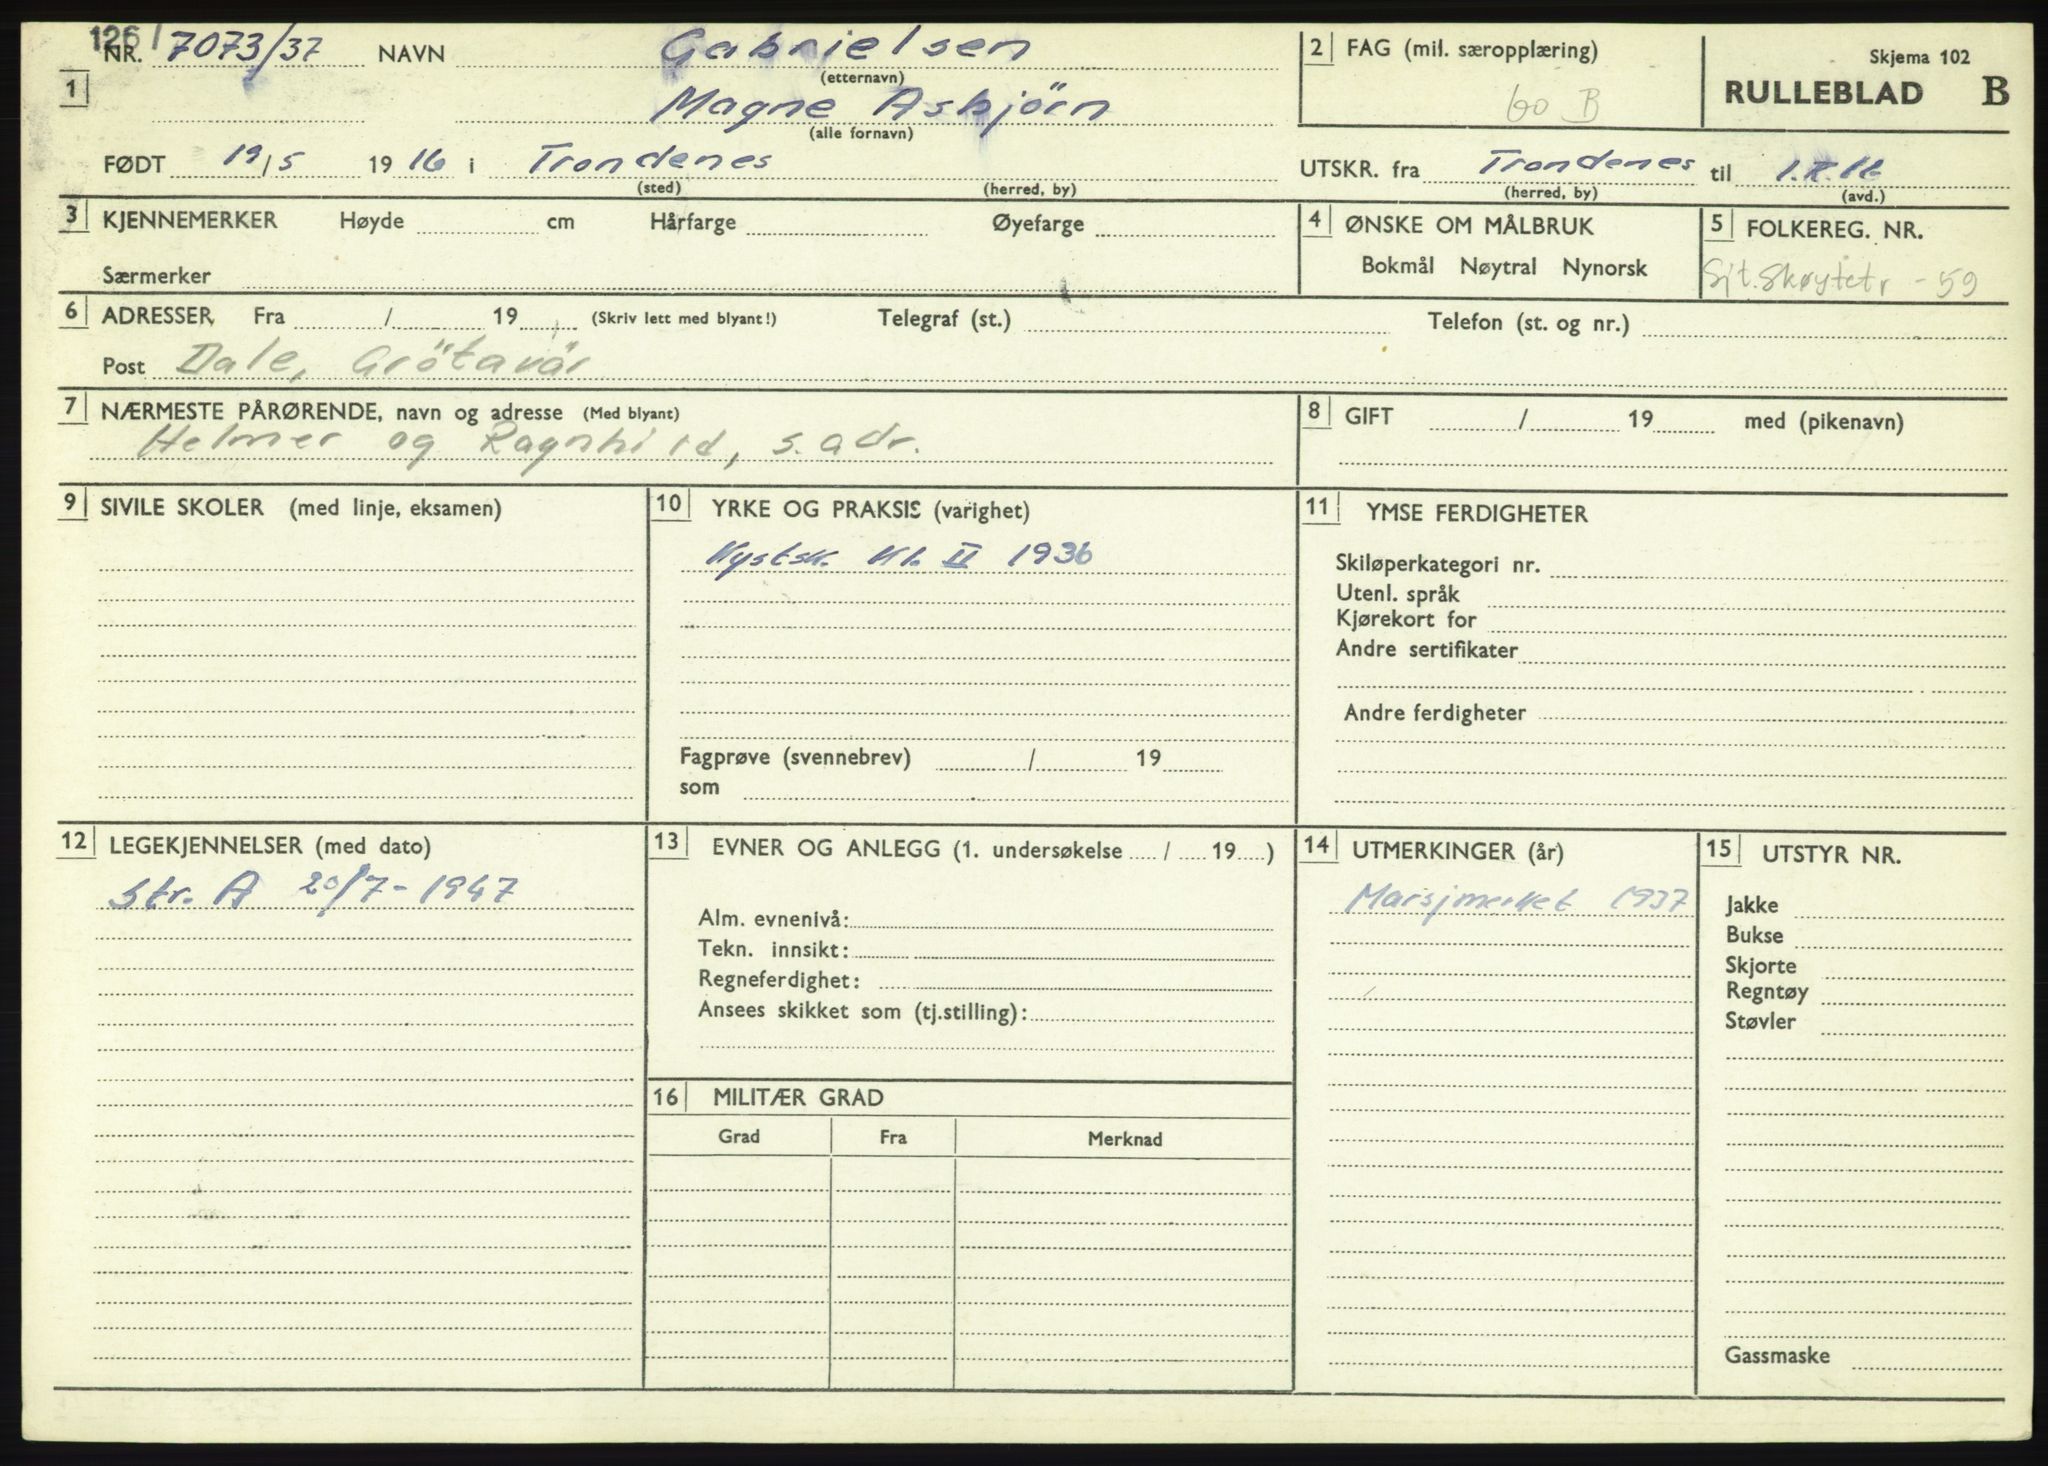 126/
NR. 7073/37 NAVN Gabrielsen
(etternavn)
1
Magne Asbjörn
(alle fornavn)
FØDT 19/5 1916 i Trondenes
(sted) (herred, by)
2 FAG (mil. særopplæring)
60 B
Skjema 102
RULLEBLAD B
UTSKR. fra Trondenes til I.R.16
(herred, by) (avd.)
3 KJENNEMERKER Høyde cm Hårfarge Øyefarge
Særmerker
4 ØNSKE OM MÅLBRUK
Bokmål Nøytral Nynorsk
5 FOLKEREG. NR.
Sjt. Skøytetr -59
6 ADRESSER Fra / 19 (Skriv lett med blyant!) Telegraf (st.) Telefon (st. og nr.)
Post Dale, Grötavär
7 NÆRMESTE PÅRØRENDE, navn og adresse (Med blyant)
Helmer og Ragnhild, s. adr.
8 GIFT / 19 med (pikenavn)
9 SIVILE SKOLER (med linje, eksamen)
10 YRKE OG PRAKSIS (varighet)
Kystsk. Kl. II 1936
Fagprøve (svennebrev) / 19
som
11 YMSE FERDIGHETER
Skiløperkategori nr.
Utenl. språk
Kjørekort for
Andre sertifikater
Andre ferdigheter
12 LEGEKJENNELSER (med dato)
Str. A 20/7-1947
13 EVNER OG ANLEGG (1. undersøkelse / 19 )
Alm. evnenivå:
Tekn. innsikt:
Regneferdighet:
Ansees skikket som (tj.stilling):
14 UTMERKINGER (år)
Marsjmerket 1937
15 UTSTYR NR.
Jakke
Bukse
Skjorte
Regntøy
Støvler
Gassmaske
16 MILITÆR GRAD
Grad Fra Merknad